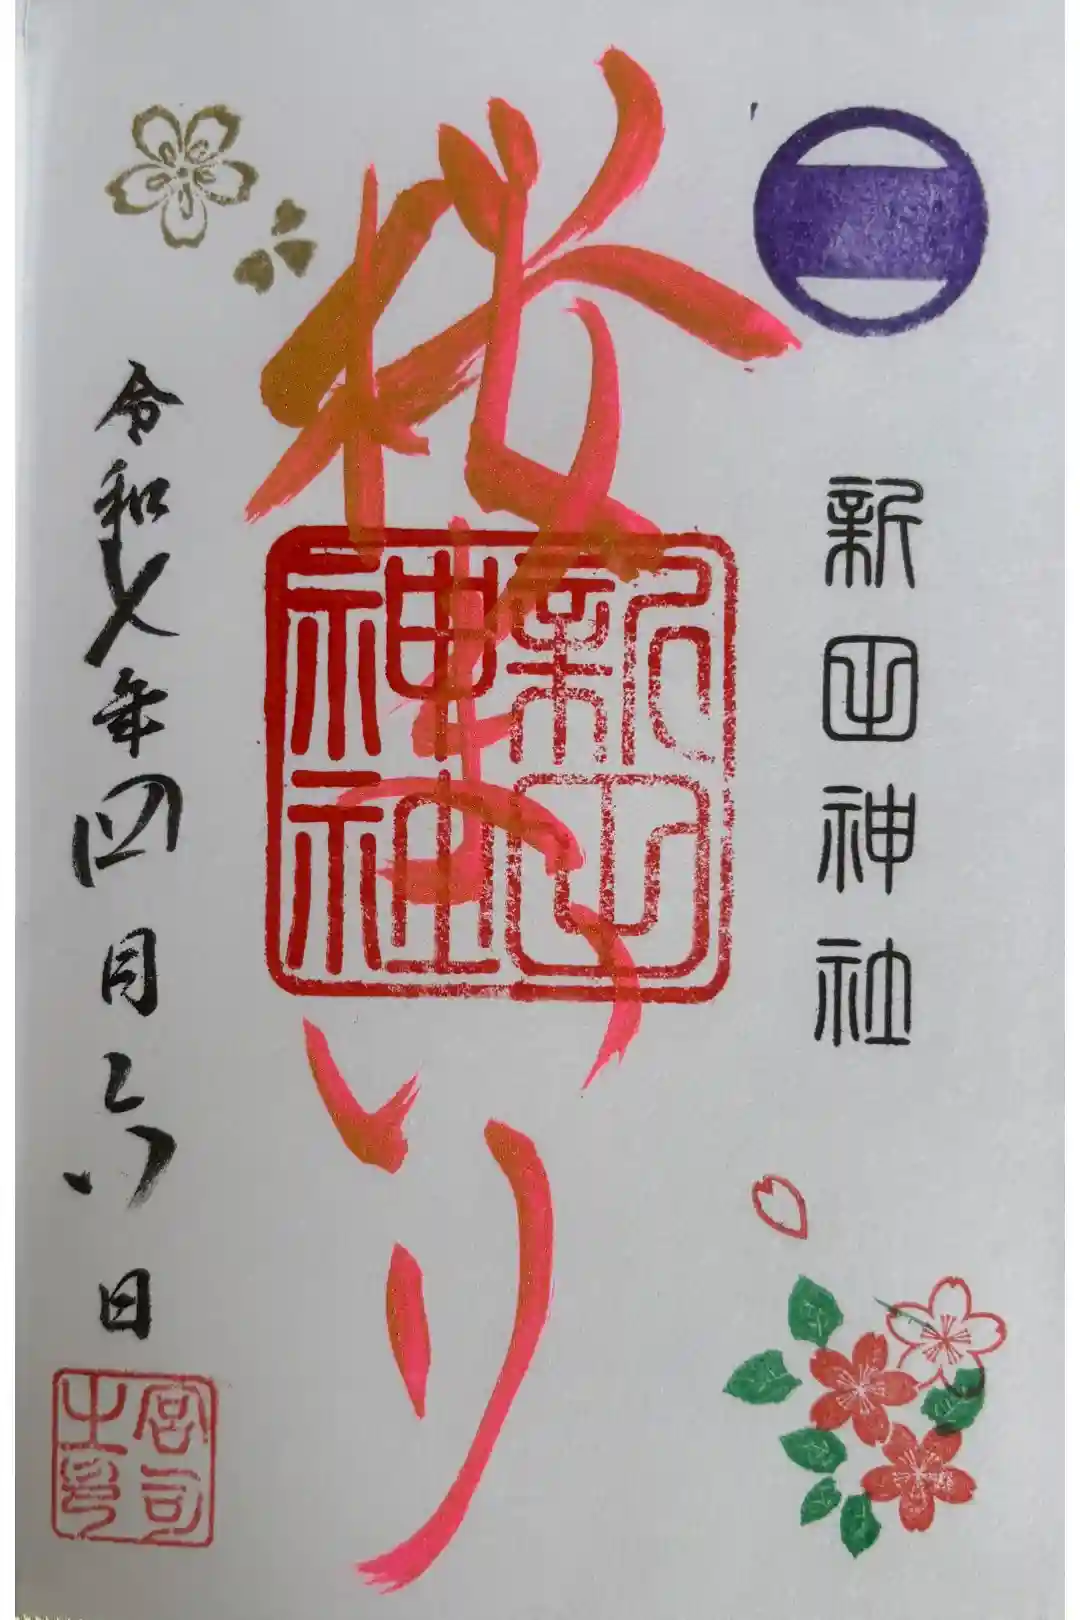 新田神社
桜まつり
新田
神社
令和七年四月六日
宮司
之印